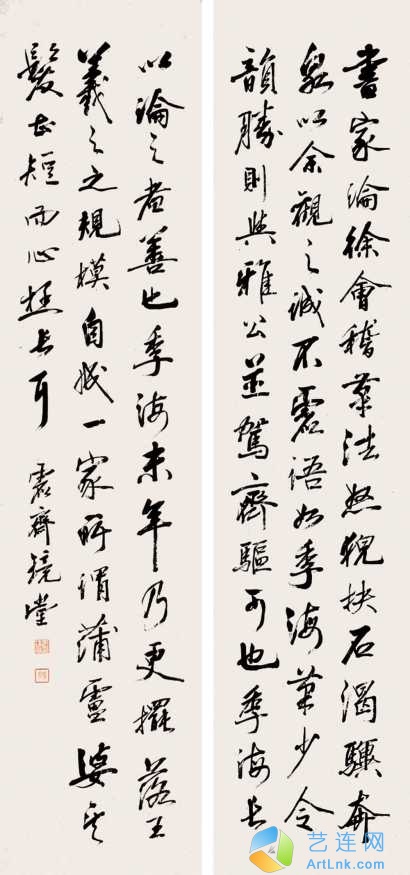 書家論徐會稽筆法怒猊抉石渴驥奔
泉以余觀之誠不虛語如季海筆少令
韻勝則與雅公並駕齊驅可也季海長
以論之者善也季海末年乃更擺落王
羲之之規模自成一家所謂蒲盧婆其
髮甚短而心極長耳
艺连网
ArtLnk.com